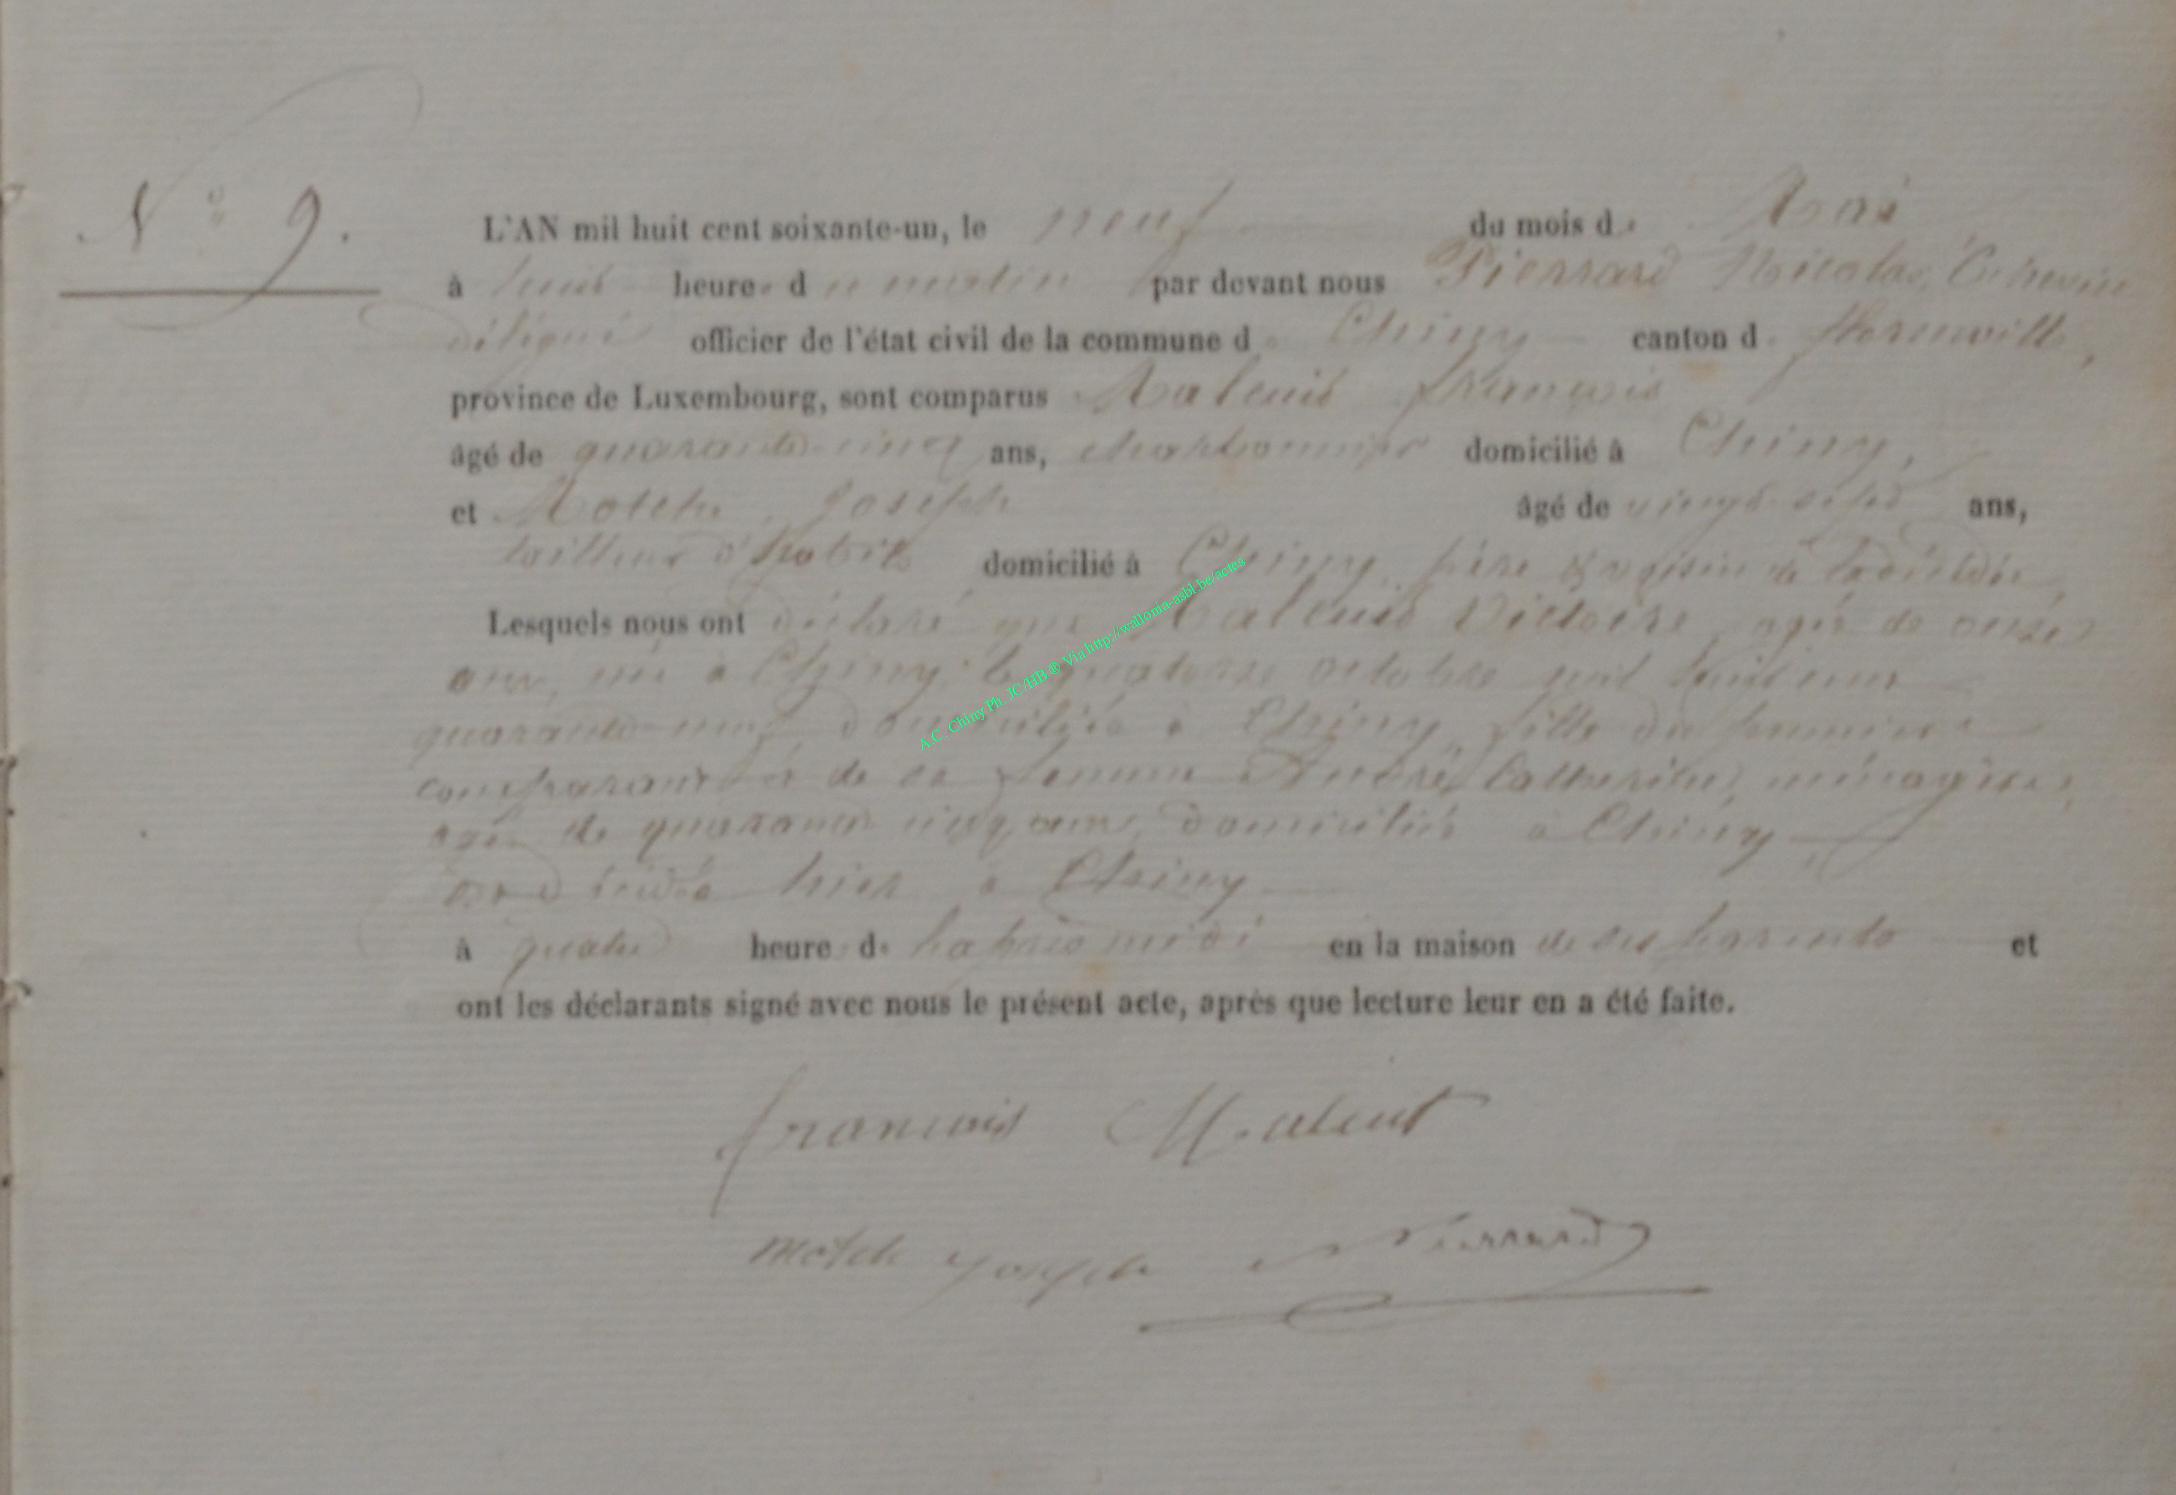 N° 9.
L'AN mil huit cent soixante-un, le neuf du mois de Mai
à huit heures du matin par devant nous Pierrard Nicolas, Echevin
délégué officier de l'état civil de la commune de Chiny canton de Florenville,
province de Luxembourg, sont comparus Maleut François
âgé de quarante-cinq ans, charbonnier domicilié à Chiny,
et Motch Joseph âgé de vingt-sept ans,
tailleur d'habits domicilié à Chiny, père & voisin de la décédée,
Lesquels nous ont déclaré que Maleut Victoire, agée de onze
ans, née à Chiny le quatorze octobre mil huit cent
quarante-neuf, domiciliée à Chiny, fille du premier
comparant & de sa femme André Catherine, ménagère,
agée de quarante cinq ans, domiciliés à Chiny
est décédée hier à Chiny
à quatre heures de l'après midi en la maison de ses parents et
ont les déclarants signé avec nous le présent acte, après que lecture leur en a été faite.
francois Maleut
Motch Joseph N Pierrard
A.C. Chiny Ph. JC/HB ® Via http://walloma-asbl.be/actes